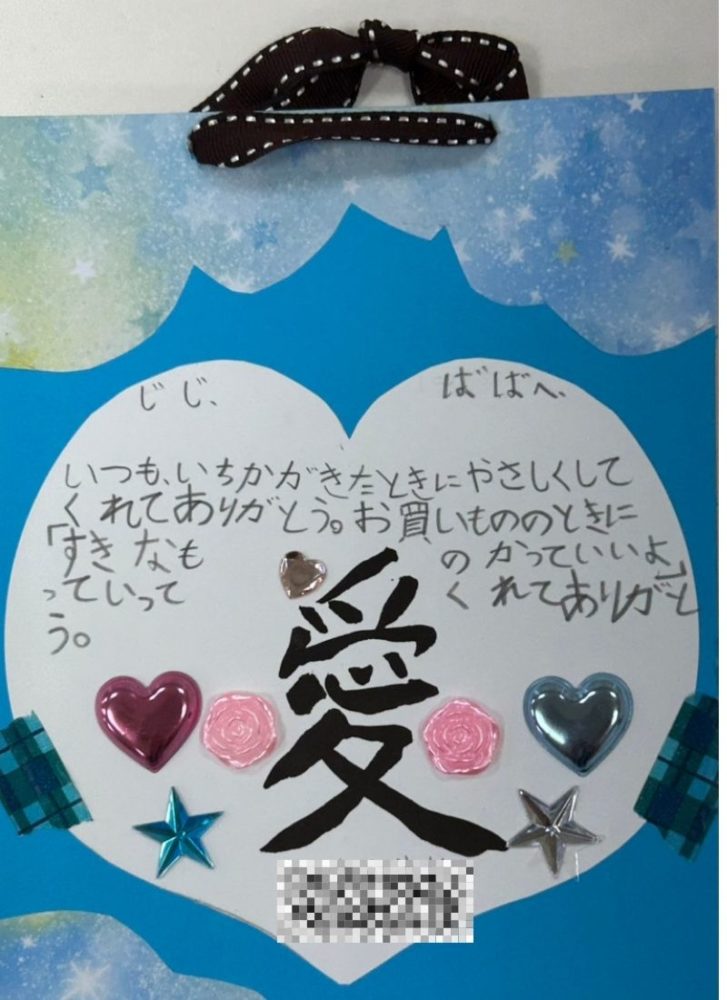 じじ、 ばばへ、
いつも、いちかがきたときにやさしくして
くれてありがとう。お買いもののときに
「すきなも のかっていいよ」
っていって くれてありがと
う。
愛